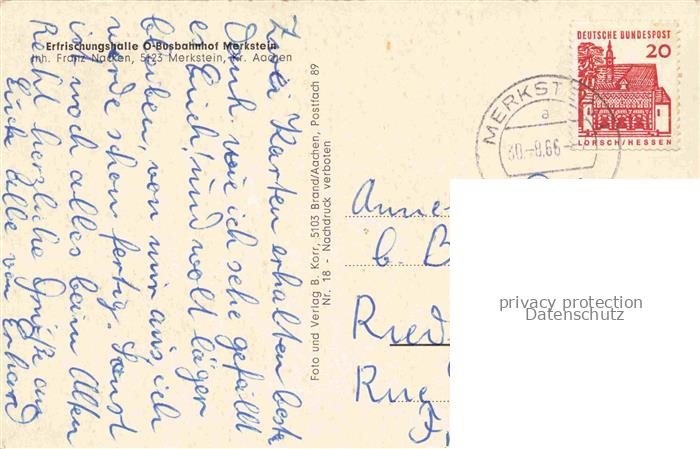 Erfrischungshalle O-Busbahnhof Merkstein
Inh. Franz Nacken, 5123 Merkstein, Kr. Aachen
Zwei Karten erhalten beste
Dank. wie ich sehe gefällt
es Euch! und wolt läger
bleiben, von mir aus, ich
werde schon fertig. Sonst
ist noch alles beim Alten
Recht herzliche Grüße an
Euch Alle von Erhard
Foto und Verlag B. Korr, 5103 Brand/Aachen, Postfach 89
Nr. 18 - Nachdruck verboten
DEUTSCHE BUNDESPOST
20
LORSCH/HESSEN
MERKST
a
30.-8.66
Anne
b. B
Ried
privacy protection
Datenschutz